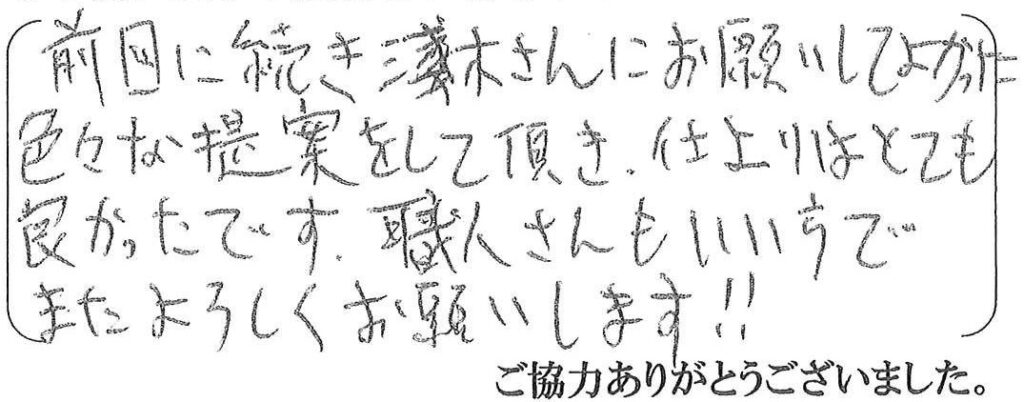 前回に続き薄木さんにお願いしてよかった
色々な提案をして頂き、仕上りはとても
良かったです。職人さんもいい方で
またよろしくお願いします!!
ご協力ありがとうございました。